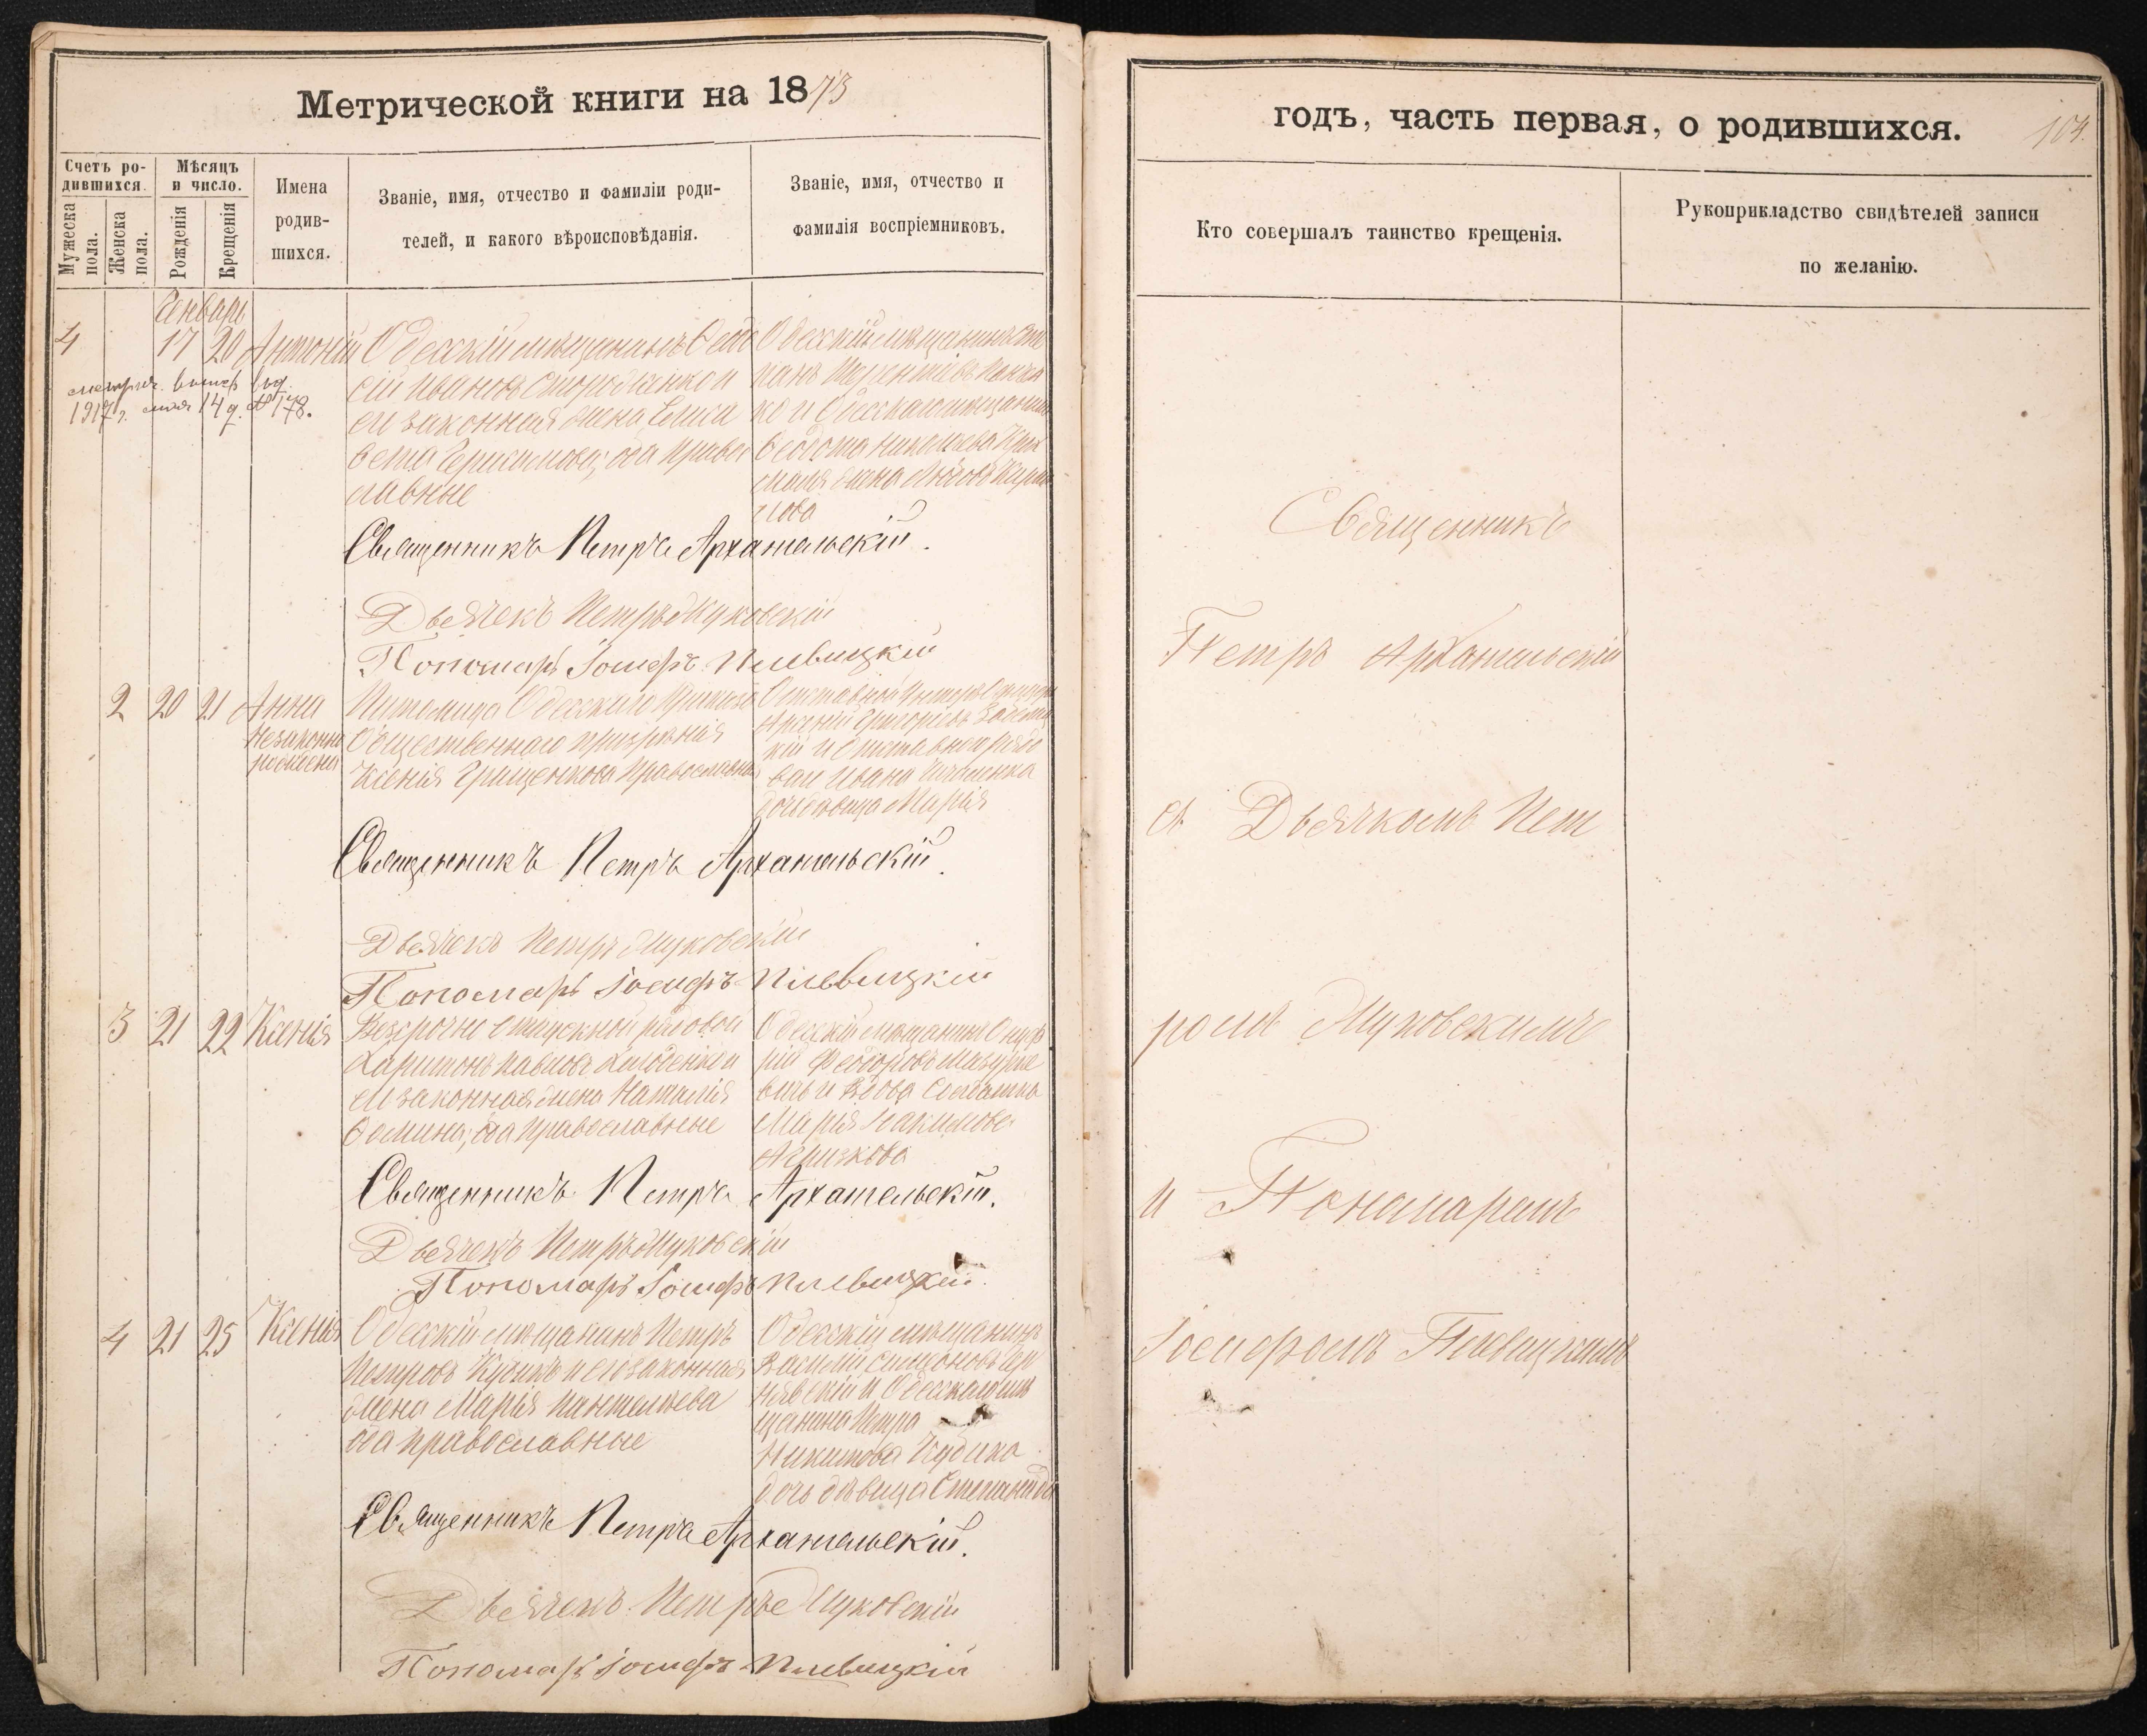 Метрической книги на 1873
Счетъ ро-
дившихся.
Мѣсяцъ
и число.
Мужеска
пола.
Женска
пола.
Рожденія
Крещенія
Имена
родив-
шихся.
Званіе, имя, отчество и фамиліи роди-
телей, и какого вѣроисповѣданія.
Званіе, имя, отчество и
фамилія воспріемниковъ.
Январь
4 17 20 Антоній
метрич. выпись выд.
1917 г. мая 14 д. № 178.
Одесскій мѣщанинъ Ѳеодо
сій Ивановъ и
его законная жена Елиса
вета Герасимова; оба право
славные
Одесскій мѣщанинъ Сте
панъ Терентіевъ
ко и Одесскаго мѣщанина
Ѳедота Николаева
жена Любовь
лова
Священникъ Петръ Архангельскій.
Дьячекъ Петръ Жуковскій
Пономарь Іосифъ Плевицкій
2 20 21 Анна
Незаконно
рождена
Питомица Одесскаго Приказа
Общественнаго призрѣнія
Ксенія Грищенкова Православная
Отставной Унтеръ Офицеръ
Арсеній Григорьевъ
кій и отставнаго рядо
ваго Ивана
дочь девица Марія
Священникъ Петръ Архангельскій.
Дьячекъ Петръ Жуковскій
Пономарь Іосифъ Плевицкій
3 21 22 Ксенія
Безсрочно Отпускной рядовой
Харитонъ Павловъ и
его законная жена Наталія
Ѳомина; оба православные
Одесскій мѣщанинъ Онуф
рій Ѳеодоровъ Мазурке
вичъ и вдова Солдатка
Марія Іакимова
Священникъ Петръ Архангельскій.
Дьячекъ Петръ Жуковскій
Пономарь Іосифъ Плевицкій.
4 21 25 Ксенія
Одесскій мѣщанинъ Петръ
Петровъ и его законная
жена Марія Пантелѣева
оба православные
Одесскій мѣщанинъ
Василій Симеоновъ Чер
нявскій и Одесскаго мѣ
щанина Петра
Никитова Кубика
дочь дѣвица Степанида
Священникъ Петръ Архангельскій.
Дьячекъ Петръ Жуковскій
Пономарь Іосифъ Плевицкій
годъ, часть первая, о родившихся.
104.
Кто совершалъ таинство крещенія.
Рукоприкладство свидѣтелей записи
по желанію.
Священникъ
Петръ Архангельскій
съ Дьячкомъ Пет
ромъ Жуковскимъ
и Пономаремъ
Іосифомъ Плевицкимъ